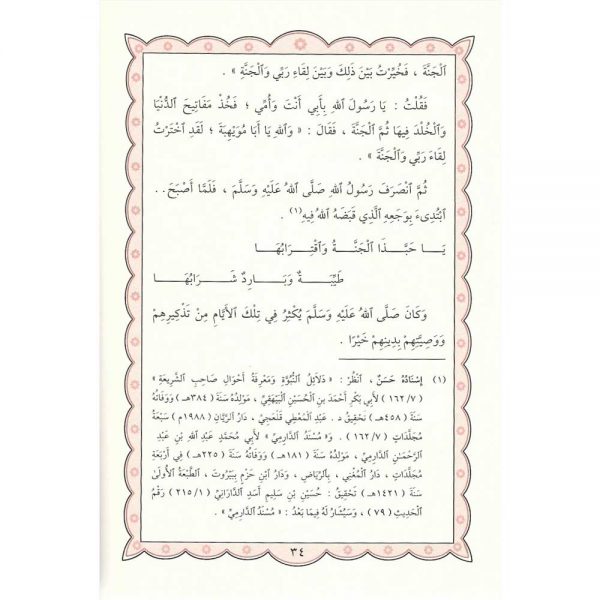 ٱلْجَنَّةَ ، فَخُيِّرْتُ بَيْنَ ذَلِكَ وَبَيْنَ لِقَاءِ رَبِّي وَٱلْجَنَّةِ » .
فَقُلْتُ : يَا رَسُولَ ٱللهِ بِأَبِي أَنْتَ وَأُمِّي ؛ فَخُذْ مَفَاتِيحَ ٱلدُّنْيَا
وَٱلْخُلْدَ فِيهَا ثُمَّ ٱلْجَنَّةَ ، فَقَالَ : « وَٱللهِ يَا أَبَا مُوَيْهِبَةَ ؛ لَقَدِ ٱخْتَرْتُ
لِقَاءَ رَبِّي وَٱلْجَنَّةَ » .
ثُمَّ ٱنْصَرَفَ رَسُولُ ٱللهِ صَلَّى ٱللهُ عَلَيْهِ وَسَلَّمَ ، فَلَمَّا أَصْبَحَ . .
ٱبْتُدِىءَ بِوَجَعِهِ ٱلَّذِي قَبَضَهُ ٱللهُ فِيهِ (١) .
يَـا حَبَّـذَا ٱلْجَنَّـةُ وَٱقْتِـرَابُهَـا
طَيِّبَـةٌ وَبَـارِدٌ شَـرَابُهَـا
وَكَانَ صَلَّى ٱللهُ عَلَيْهِ وَسَلَّمَ يُكْثِرُ فِي تِلْكَ ٱلأَيَّامِ مِنْ تَذْكِيرِهِمْ
وَوَصِيَّتِهِمْ بِدِينِهِمْ خَيْرًا .
(١) إِسْنَادُهُ حَسَنٌ ، ٱنْظُرْ : « دَلَائِلُ ٱلنُّبُوَّةِ وَمَعْرِفَةُ أَحْوَالِ صَاحِبِ ٱلشَّرِيعَةِ »
( ٧/ ١٦٢ ) لأَبِي بَكْرٍ أَحْمَدَ بنِ ٱلْحُسَيْنِ ٱلْبَيْهَقِيِّ ، مَوْلِدُهُ سَنَةَ ( ٣٨٤هـ ) وَوَفَاتُهُ
سَنَةَ ( ٤٥٨هـ ) تَحْقِيقُ د . عَبْدِ ٱلْمُعْطِي قَلْعَجِي ، دَارُ ٱلرَّيَّانِ ( ١٩٨٨م ) سَبْعَةُ
مُجَلَّدَاتٍ ( ٧/ ١٦٢ ) . وَ« مُسْنَدُ ٱلدَّارِمِيِّ » لأَبِي مُحَمَّدٍ عَبْدِ ٱللهِ بنِ عَبْدِ
ٱلرَّحْمَـٰنِ ٱلدَّارِمِيِّ ، مَوْلِدُهُ سَنَةَ ( ١٨١هـ ) وَوَفَاتُهُ سَنَةَ ( ٢٢٥هـ ) فِي أَرْبَعَةِ
مُجَلَّدَاتٍ ، دَارُ ٱلْمُغْنِي ، بِٱلرِّيَاضِ ، وَدَارُ ٱبْنِ حَزْمٍ بِبَيْرُوتَ ، ٱلطَّبْعَةُ ٱلأُولَىٰ
سَنَةَ ( ١٤٢١هـ ) تَحْقِيقُ : حُسَيْنِ بنِ سَلِيمٍ أَسَدٍ ٱلدَّارَانِيِّ ( ١/ ٢١٥ ) رَقْمُ
ٱلْحَدِيثِ ( ٧٩ ) ، وَسَيُشَارُ لَهُ فِيمَا بَعْدُ : « مُسْنَدُ ٱلدَّارِمِيِّ » .
٣٤